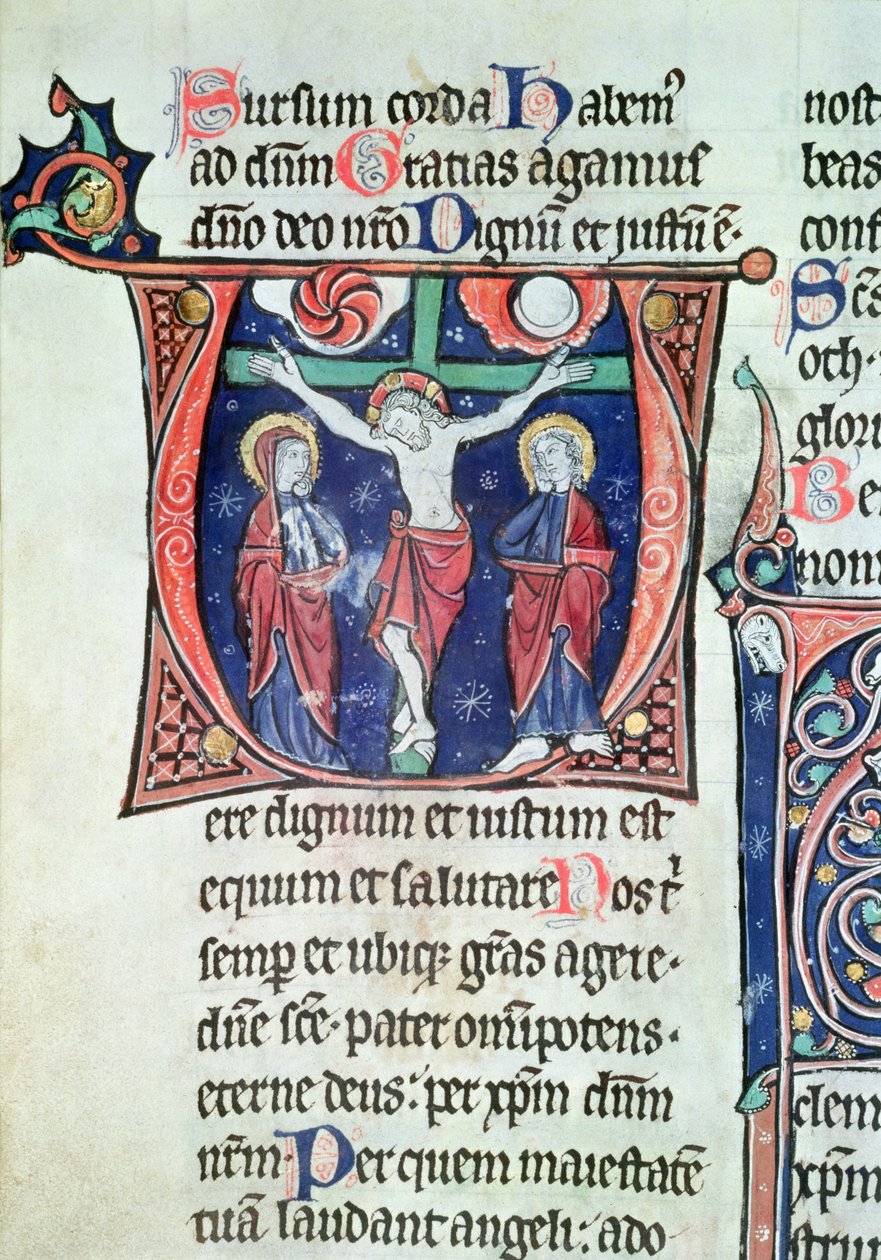 Sursum corda Habemꝰ
ad dn̄m Gratias agamus
dn̄o deo nr̄o Dignū et justū ē·
Vere dignum et iustum est
equum et salutare Nos t
semꝑ et ubiqꝫ gr̄as agere·
dn̄e sc̄e· pater om̄ipotens·
eterne deus: per xp̄m dn̄m
nr̄m· Per quem maiestatē
tuā laudant angeli: ado
nost
beas
conf
Sc̄s
och·
glori
Be
nom
clem
xp̄m
strum